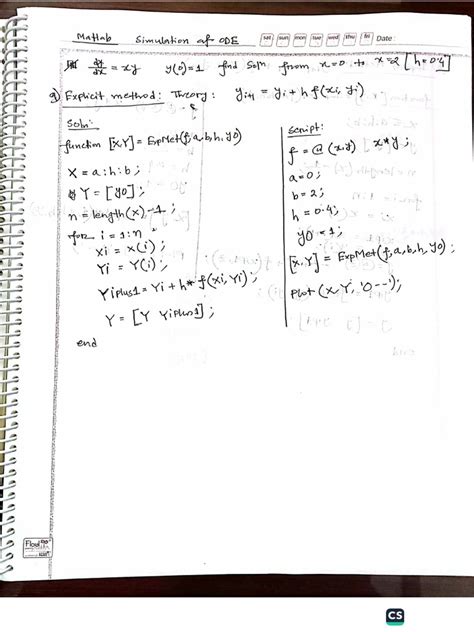 Matlab Simulation of ODE
sat sun mon tue wed thu fri Date:
dy/dx = xy y(0)=1 find Soln from x=0 to x=2 [h=0.4]
Explicit method: Theory: yi+1 = yi + h f(xi, yi)
Soln:
function [X,Y] = ExpMet(f,a,b,h,y0)
X = a:h:b;
Y = [y0];
n = length(x)-1;
for i = 1:n
xi = x(i);
Yi = Y(i);
Yiplus1 = Yi + h* f(xi, Yi);
Y = [Y Yiplus1];
end
Script:
f = @(x,y) x*y;
a=0;
b=2;
h=0.4;
y0=1;
[x,Y] = ExpMet(f,a,b,h,y0);
Plot (x,Y,'O--');
CS